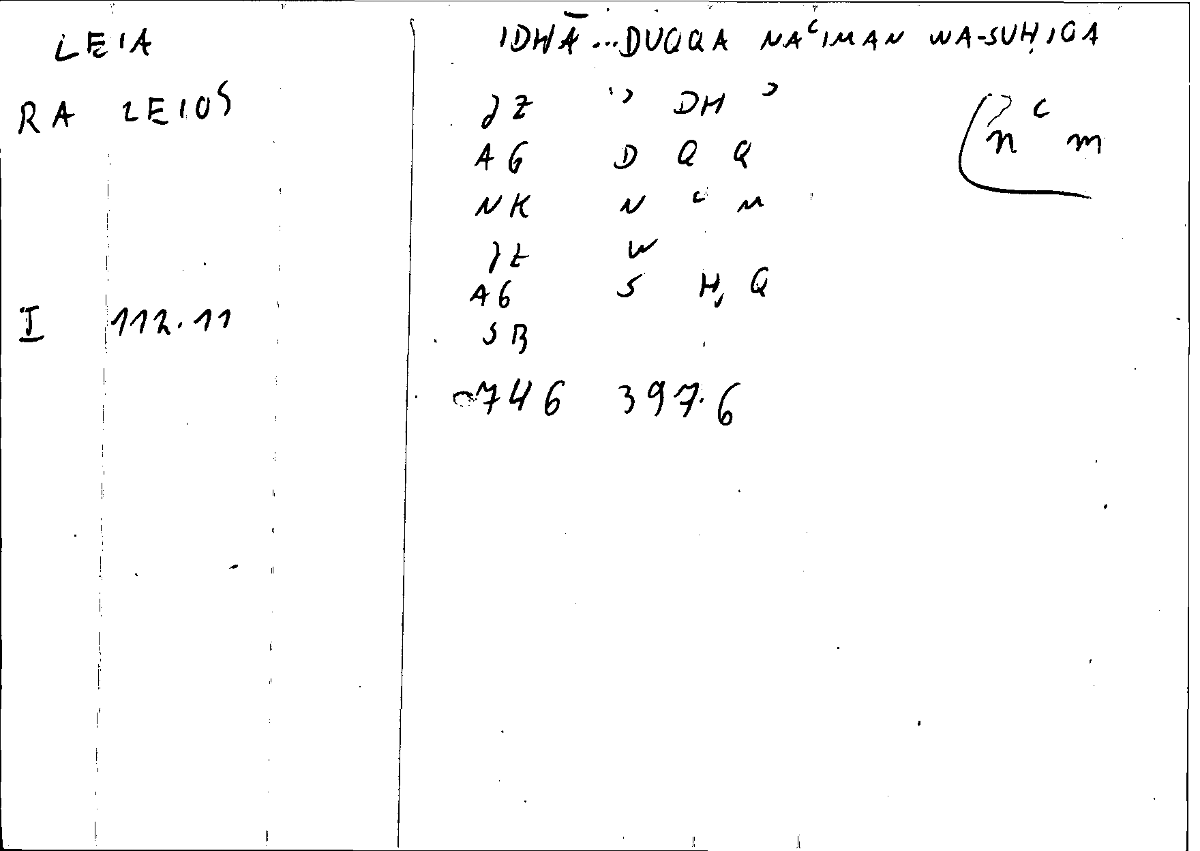 LEIA
RA LEIOS
I 112.11
IDHĀ...DUQQA NAʿIMAN WA-SUḤIQA
ʾ DH ʾ
AG D Q Q
NK N ʿ M
W
AG S Ḥ Q
SB
746 397.6
n ʿ m